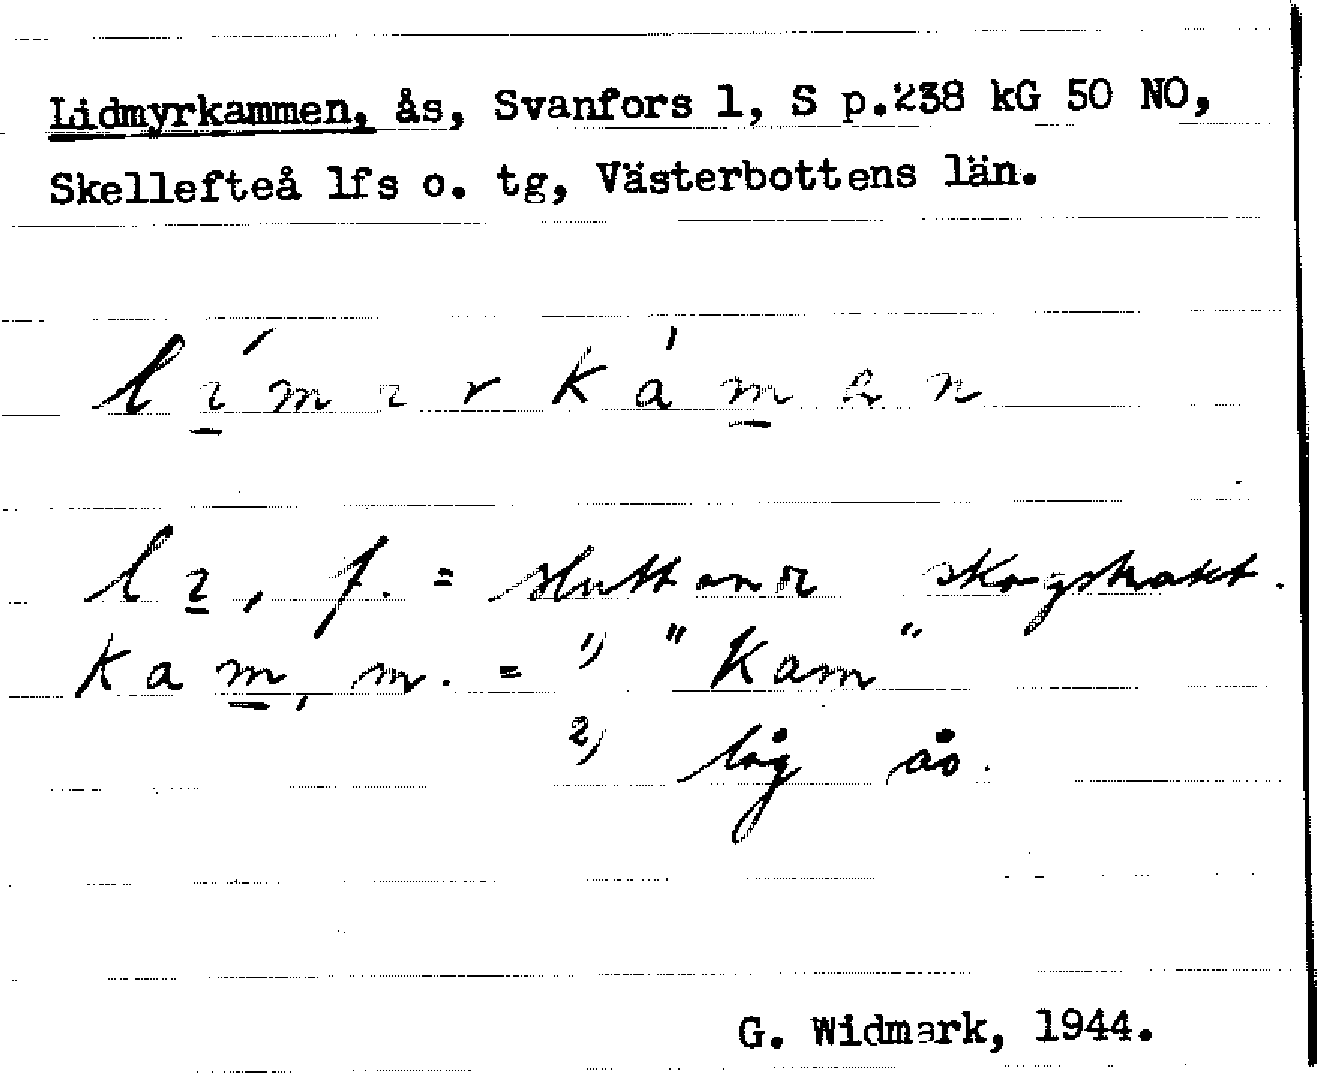 Lidmyrkammen, ås, Svanfors 1, S p.238 kG 50 NO,
Skellefteå lfs o. tg, Västerbottens län.
lı́mırkámən
lı, f. = sluttande skogstrakt.
kam, m. = 1) "kam"
2) låg ås.
G. Widmark, 1944.